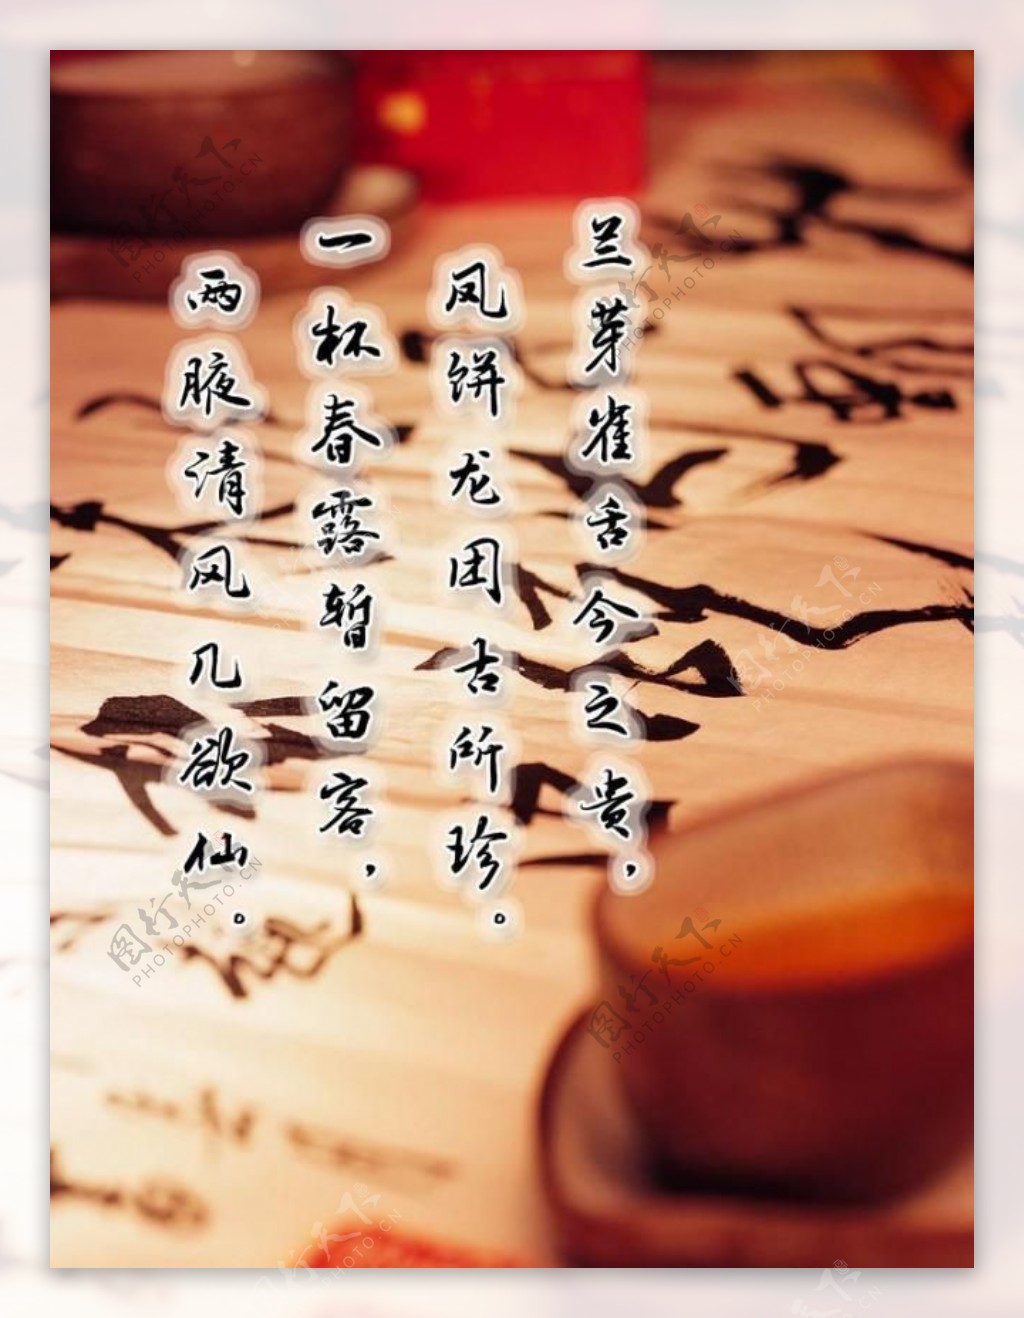 兰芽雀舌今之贵，
凤饼龙团古所珍。
一杯春露暂留客，
两腋清风几欲仙。
图行天下
PHOTOPHOTO.CN